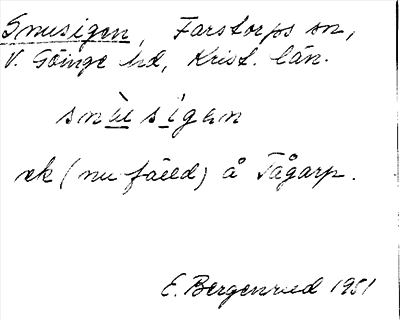 Snusigen, Farstorps sn,
V. Göinge hd, Krist. län.
snù̲s i̲gən
ek (nu fälld) å Tågarp.
E. Bergenrud 1951